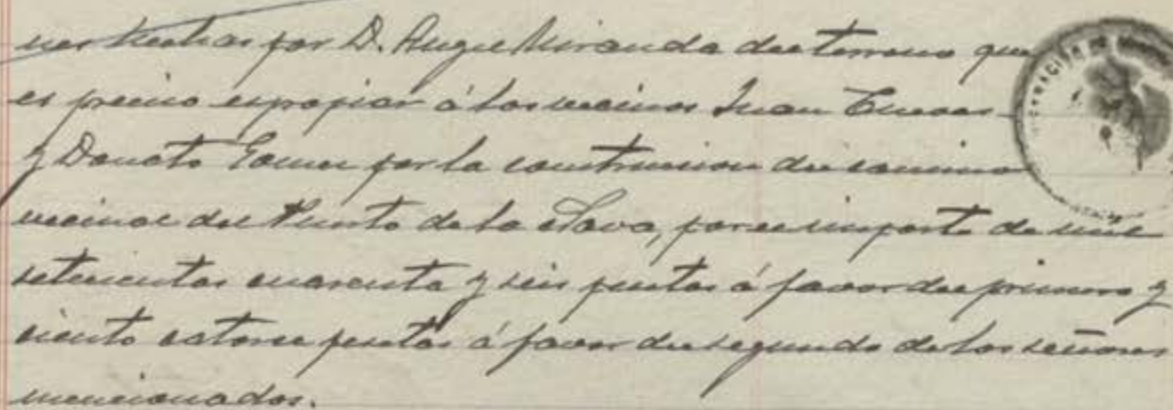 nes hechas por D. Angel Miranda del terreno que
es preciso espropiar á los vecinos Juan Cuevas
y Donato Gomez por la construccion del camino
vecinal del Punto de la Nava, por el importe de mil
setecientas cuarenta y seis pesetas á favor del primero y
ciento catorce pesetas á favor del segundo de los señores
mencionados.